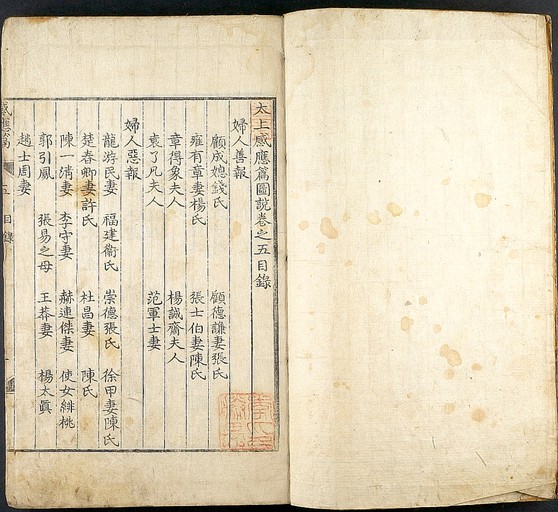 太上感應篇圖說卷之五目錄
婦人善報
顧成媳錢氏 顧德謙妻張氏
雍有章妻楊氏 張士伯妻陳氏
章得象夫人 楊誠齋夫人
袁了凡夫人 范軍士妻
婦人惡報
龍游民妻 福建衞氏 崇德張氏 徐甲妻陳氏
楚春卿妻許氏 杜昌妻 陳氏
陳一清妻 李守妻 赫連傑妻 使女緋桃
郭引鳳 張易之母 王莽妻 楊太眞
趙士周妻
感應篇 五 目錄